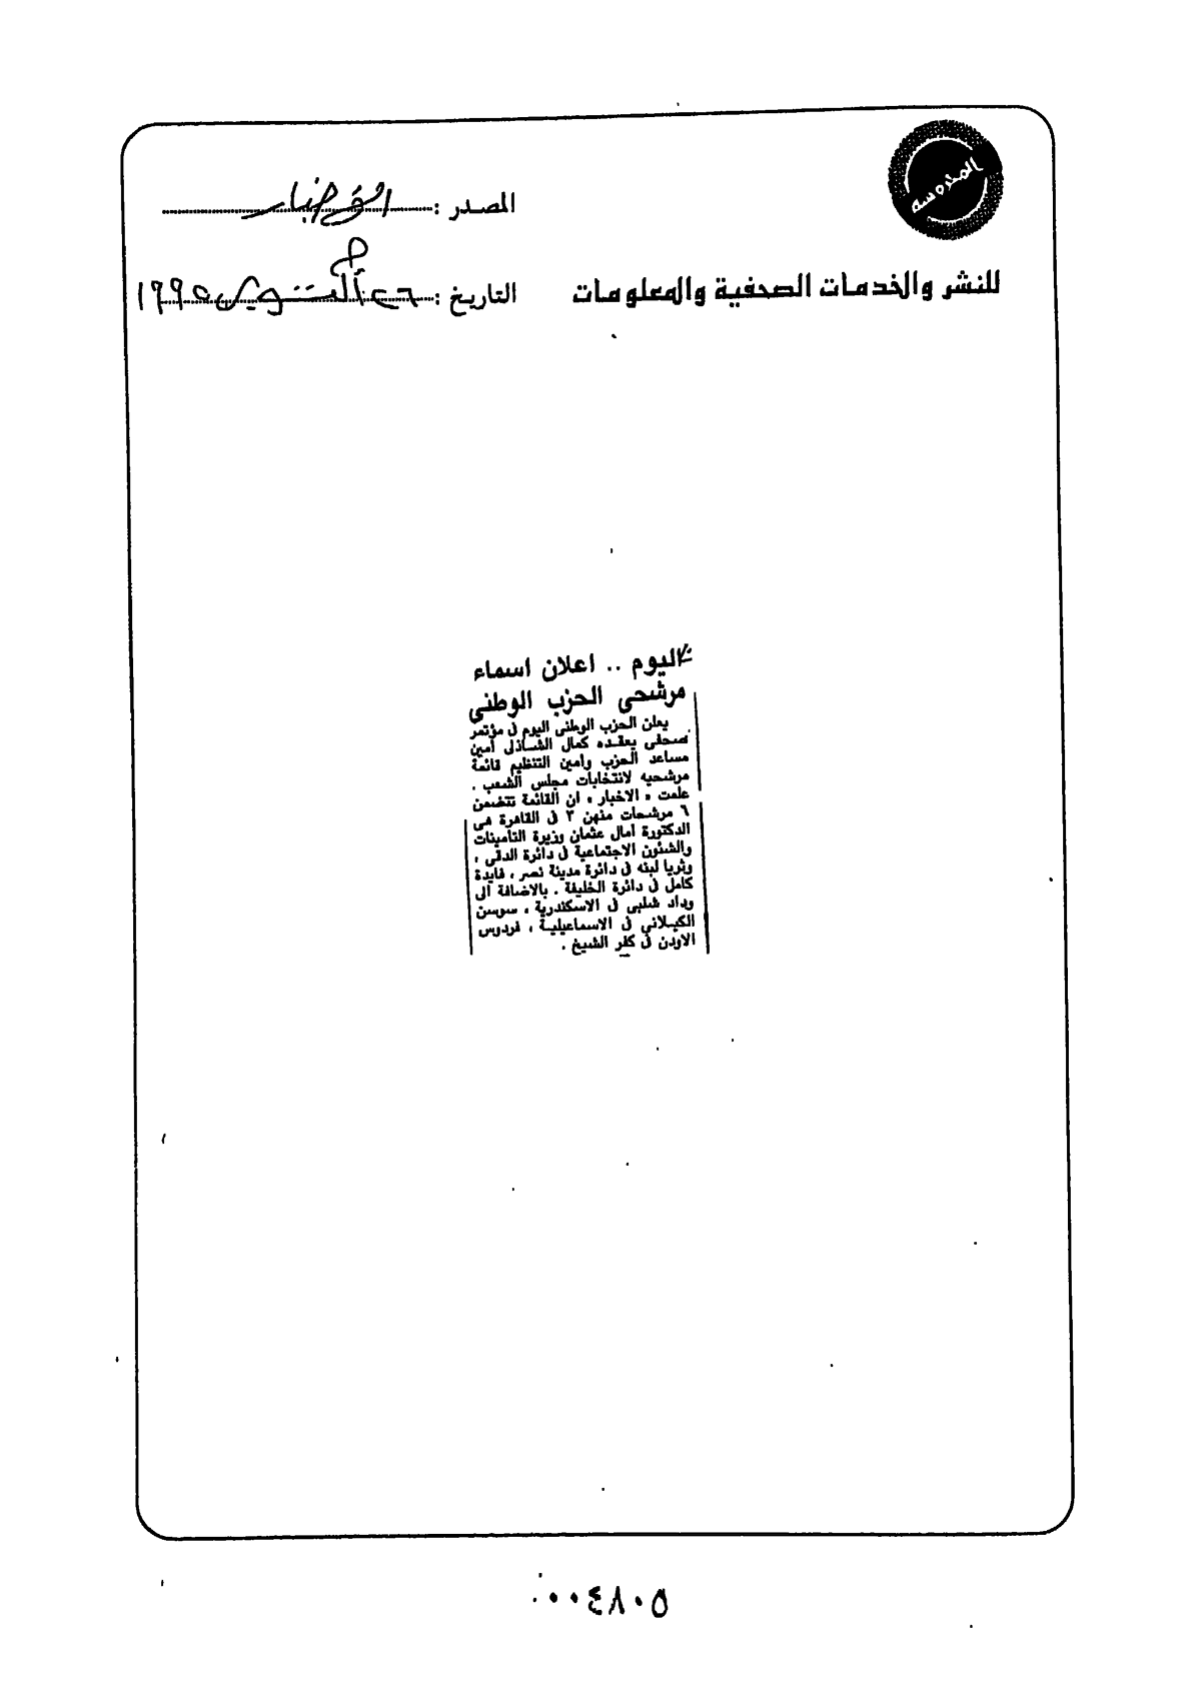 المحروسه
المصدر : الأخبار
للنشر والخدمات الصحفية والمعلومات
التاريخ : ٢٦ أكتوبر ١٩٩٥
اليوم .. اعلان اسماء
مرشحى الحزب الوطنى
يعلن الحزب الوطنى اليوم فى مؤتمر
صحفى يعقده كمال الشاذلى أمين
مساعد الحزب وأمين التنظيم قائمة
مرشحيه لانتخابات مجلس الشعب .
علمت « الاخبار » ان القائمة تتضمن
٦ مرشحات منهن ٣ فى القاهرة هى
الدكتورة آمال عثمان وزيرة التأمينات
والشئون الاجتماعية فى دائرة الدقى ،
وثريا لبنه فى دائرة مدينة نصر ، فايدة
كامل فى دائرة الخليفة . بالاضافة الى
وداد شلبى فى الاسكندرية ، سوسن
الكيلانى فى الاسماعيلية ، فردوس
الاودن فى كفر الشيخ .
٠٠٤٨٠٥